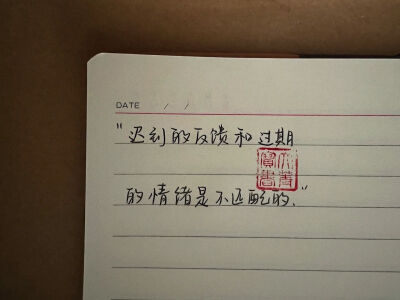 DATE / /
"迟到的反馈和过期
的情绪是不匹配的."